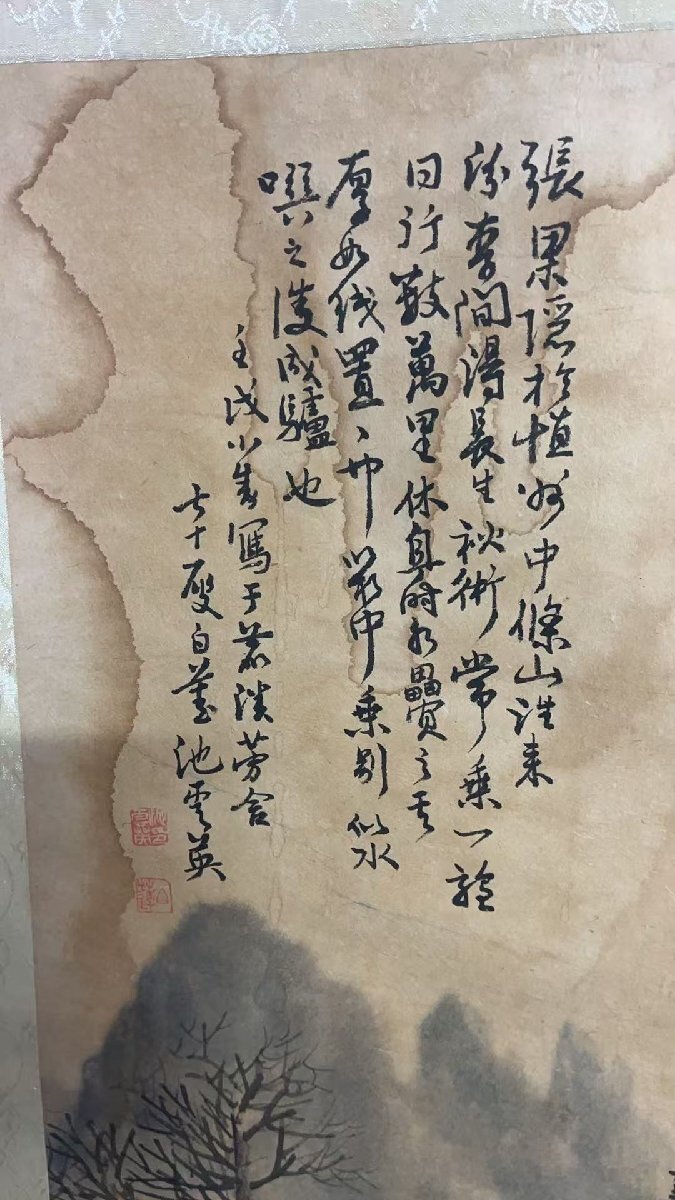 張果隱於恒州中條山往来
汾晉間得長生秘術常乘一驢
日行數萬里休息時取疊之其
厚如紙置〻巾箱中乘則以水
噀之復成驢也
壬戌小春寫于 淡 舍
七十叟白蕉池雲英